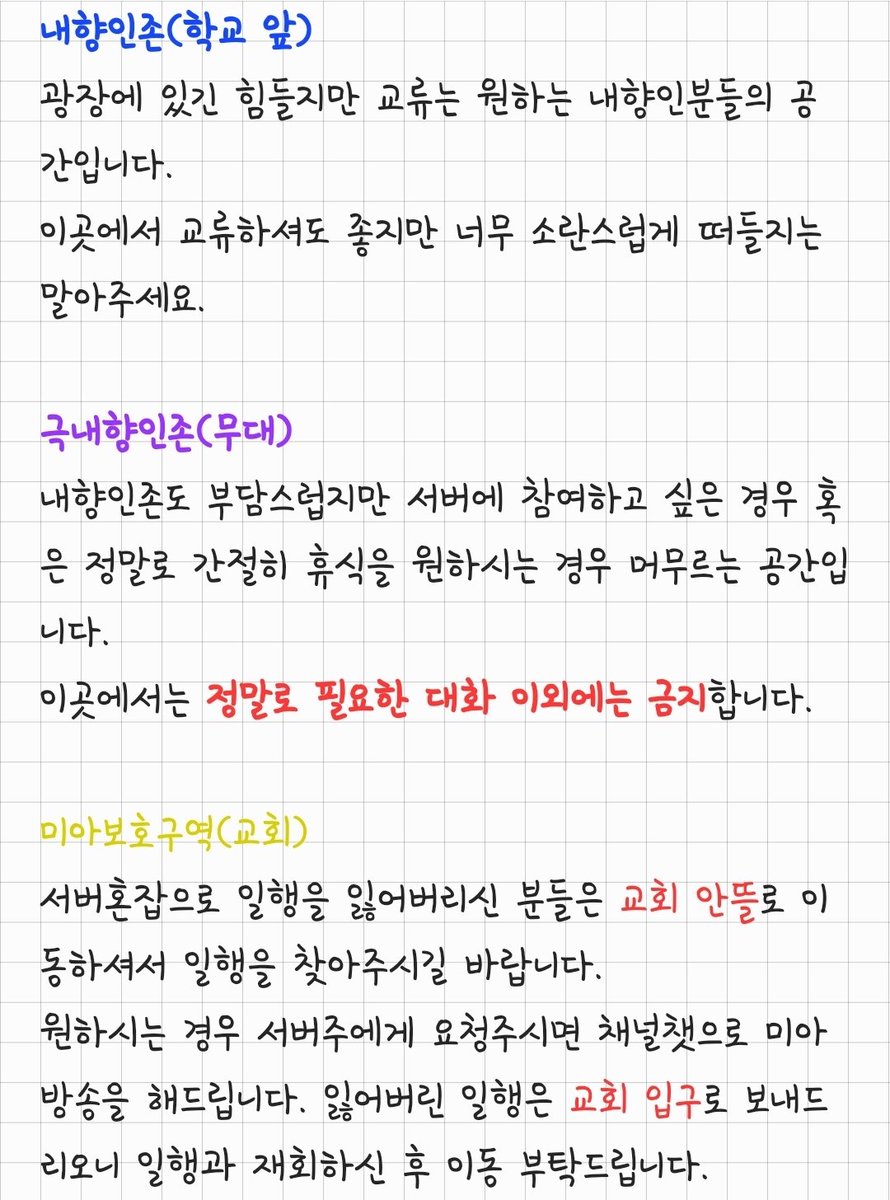 내향인존(학교 앞)
광장에 있긴 힘들지만 교류는 원하는 내향인분들의 공
간입니다.
이곳에서 교류하셔도 좋지만 너무 소란스럽게 떠들지는
말아주세요.
극내향인존(무대)
내향인존도 부담스럽지만 서버에 참여하고 싶은 경우 혹
은 정말로 간절히 휴식을 원하시는 경우 머무르는 공간입
니다.
이곳에서는 정말로 필요한 대화 이외에는 금지합니다.
미아보호구역(교회)
서버혼잡으로 일행을 잃어버리신 분들은 교회 안뜰로 이
동하셔서 일행을 찾아주시길 바랍니다.
원하시는 경우 서버주에게 요청주시면 채널챗으로 미아
방송을 해드립니다. 잃어버린 일행은 교회 입구로 보내드
리오니 일행과 재회하신 후 이동 부탁드립니다.